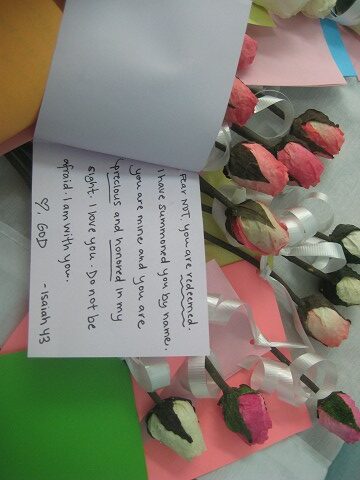 Fear NOT, you are redeemed.
I have summoned you by name.
you are mine and you are
precious and honored in my
sight. I love you. Do not be
afraid. I am with you.
♡, GOD - Isaiah 43